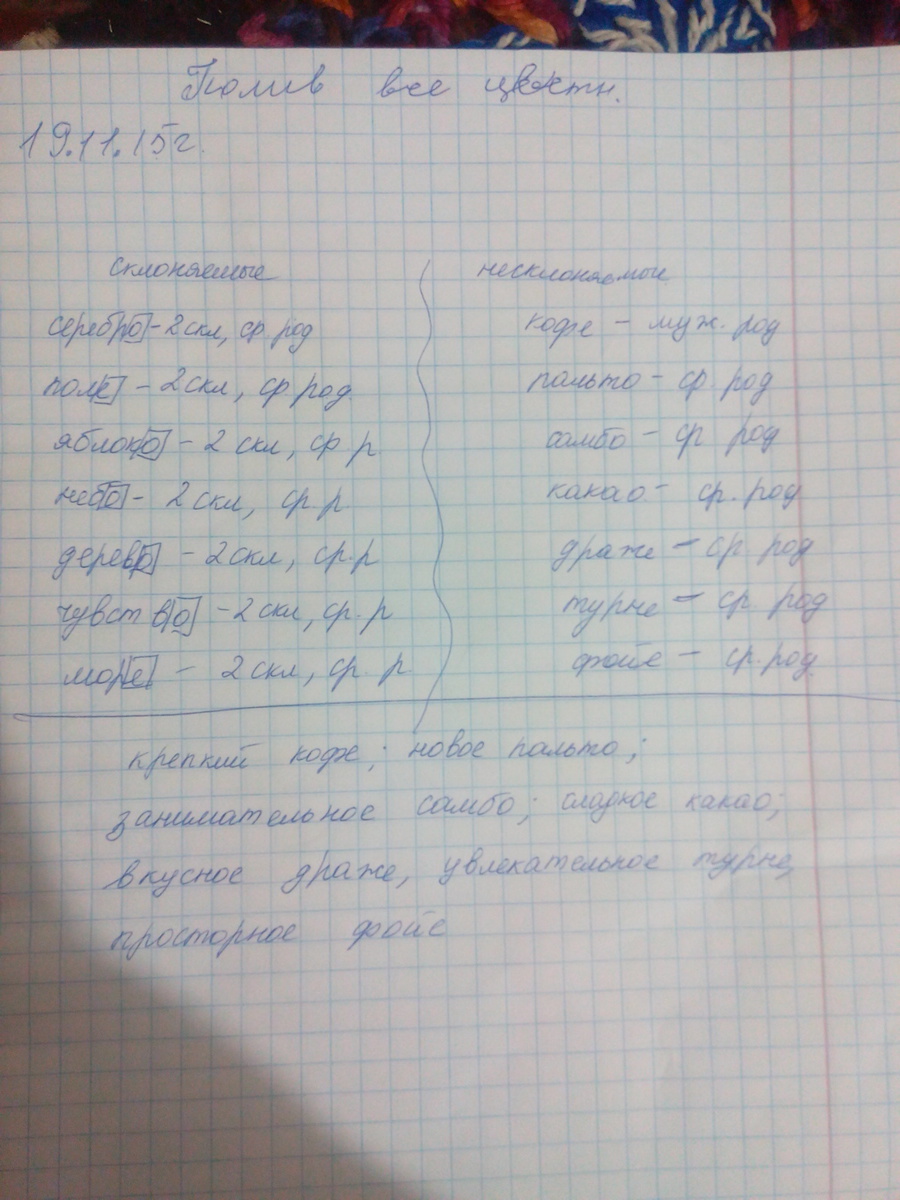 Полив все цветн.
19.11.15г.
склоняемые несклоняемые
серебро - 2 скл, ср. род кофе - муж. род
поле - 2 скл, ср. род пальто - ср. род
яблоко - 2 скл, ср р самбо - ср род
небо - 2 скл, ср. р какао - ср. род
дерево - 2 скл, ср. р драже - ср род
чувство - 2 скл, ср. р турне - ср род
море - 2 скл, ср. р фойе - ср. род
крепкий кофе; новое пальто;
занимательное самбо; сладкое какао;
вкусное драже, увлекательное турне,
просторное фойе